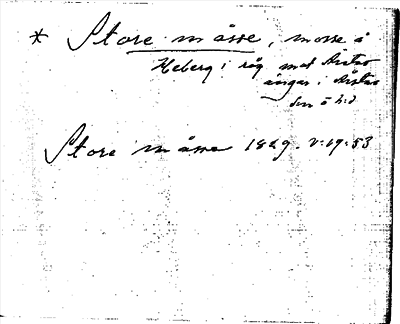 * Store måsse, mosse å
Heberg i råg mot Årstad
ängar i Årstad
sn ö hd
Store måsse 1829. V:19:53